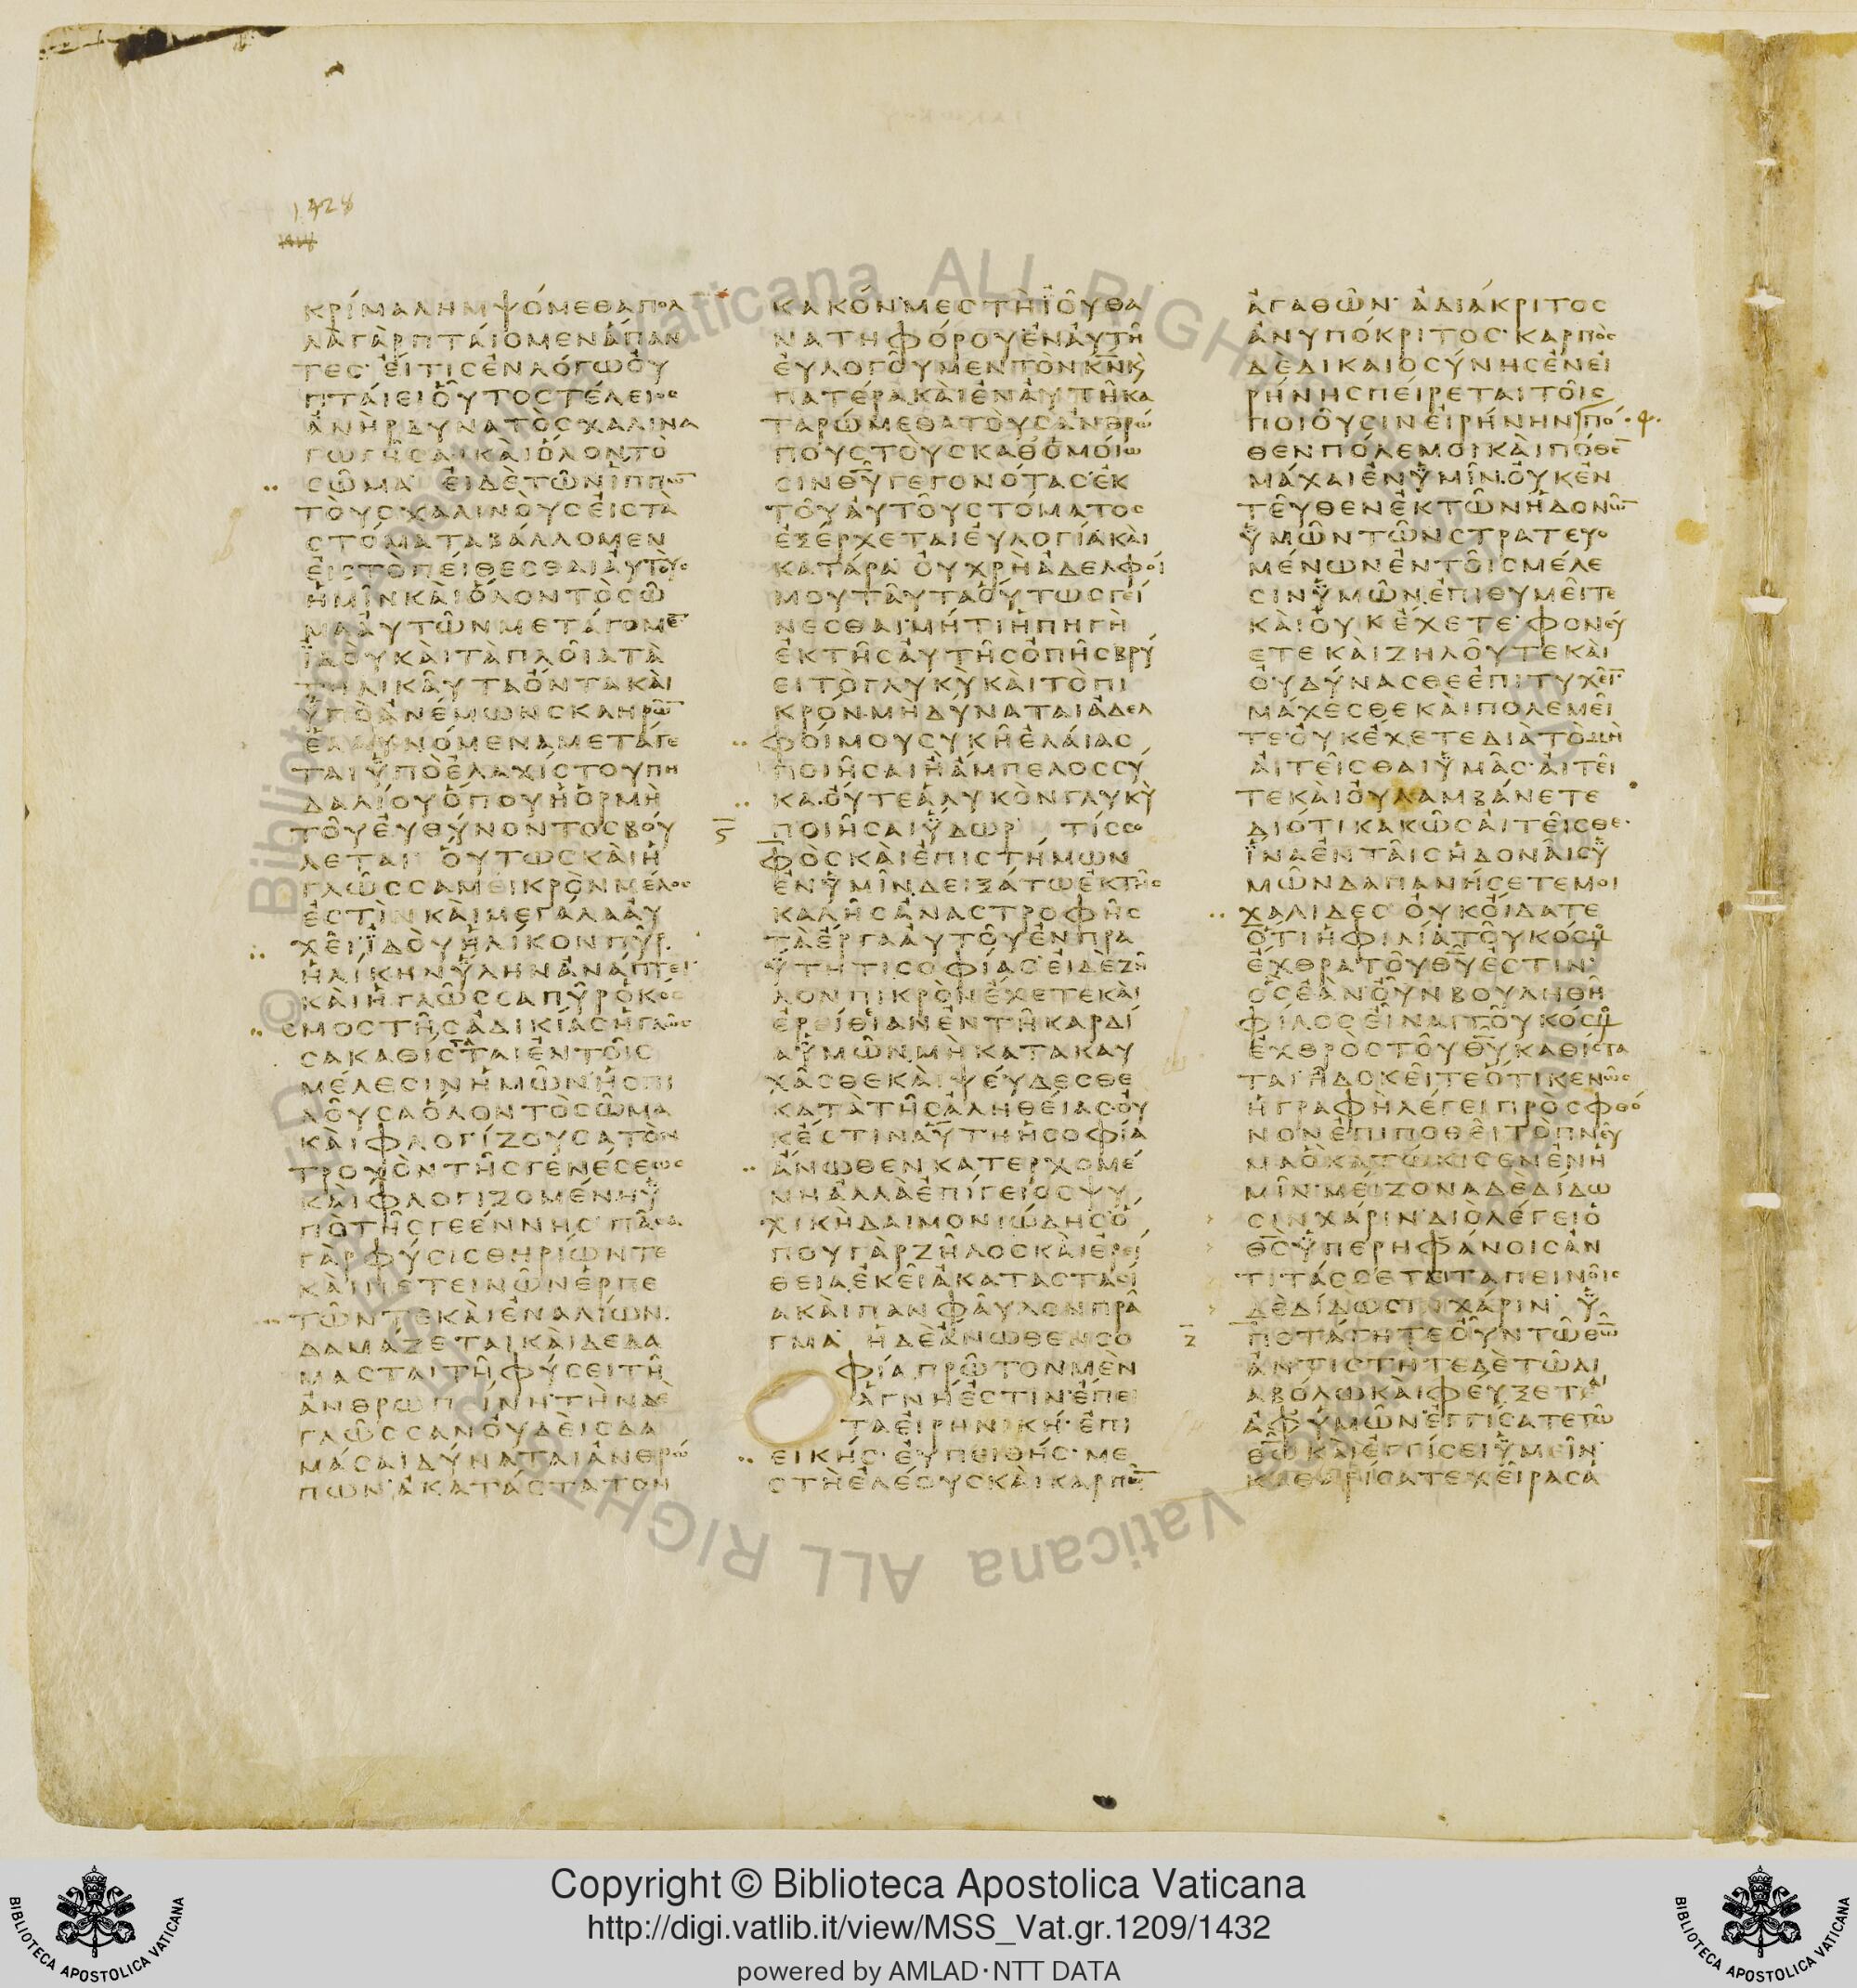 1428
κρίμα λημψόμεθα πολ
λὰ γὰρ πταίομεν ἅπαν
τες· εἴ τις ἐν λόγω οὐ
πταίει οὗτος τέλειος
ἀνὴρ δυνατὸς χαλινα
γωγῆσαι καὶ ὅλον τὸ
σῶμα· εἰ δὲ τῶν ἵππω̅
τοὺς χαλινοὺς εἰς τὰ
στόματα βάλλομεν
εἰς τὸ πείθεσθαι αὐτοὺς
ἡμῖν καὶ ὅλον τὸ σῶ
μα αὐτῶν μετάγομε̅
ἰδοὺ καὶ τὰ πλοῖα τὰ
τηλικαῦτα ὄντα καὶ
ὑπὸ ἀνέμων σκληρῶ̅
ἐλαυνόμενα μετάγε
ται ὑπὸ ἐλαχίστου πη
δαλίου ὅπου ἡ ὁρμὴ
τοῦ εὐθύνοντος βού
λεται· οὕτως καὶ ἡ
γλῶσσα μεικρὸν μέλος
ἐστὶν καὶ μεγάλα αὐ
χεῖ· ἰδοὺ ἡλίκον πῦρ
ἡλίκην ὕλην ἀνάπτει·
καὶ ἡ γλῶσσα πῦρ ὁ κό
σμος τῆς ἀδικίας ἡ γλῶσ
σα καθίσταται ἐν τοῖς
μέλεσιν ἡμῶν· ἡ σπι
λοῦσα ὅλον τὸ σῶμα
καὶ φλογίζουσα τὸν
τροχὸν τῆς γενέσεως
καὶ φλογιζομένη ὑ
πὸ τῆς γεέννης· πᾶσα
γὰρ φύσις θηρίων τε
καὶ πετεινῶν ἑρπε
τῶν τε καὶ ἐναλίων
δαμάζεται καὶ δεδα
μασται τῆ φύσει τῆ
ἀνθρωπίνη τὴν δὲ
γλῶσσαν οὐδεὶς δα
μάσαι δύναται ἀνθρώ
πων· ἀκατάστατον
κακόν· μεστὴ ἰοῦ θα
νατηφόρου ἐν αὐτῆ
εὐλογοῦμεν τὸν κ̅ν̅ κ̀
πατέρα καὶ ἐν αὐτῆ κα
ταρώμεθα τοὺς ἀνθρώ
πους τοὺς καθ ὁμοίω
σιν θ̅υ̅ γεγονότας· ἐκ
τοῦ αὐτοῦ στόματος
ἐξέρχεται εὐλογία καὶ
κατάρα· οὐ χρὴ ἀδελφοί
μου ταῦτα οὕτως γεί
νεσθαι· μήτι ἡ πηγὴ
ἐκ τῆς αὐτῆς ὀπῆς βρύ
ει τὸ γλυκὺ καὶ τὸ πι
κρόν· μὴ δύναται ἀδελ
φοί μου συκῆ ἐλαίας
ποιῆσαι ἢ ἄμπελος σῦ
κα· οὔτε ἁλυκὸν γλυκὺ
ϛ ποιῆσαι ὕδωρ· τίς σο
φὸς καὶ ἐπιστήμων
ἐν ὑμῖν· δειξάτω ἐκ τῆς
καλῆς ἀναστροφῆς
τὰ ἔργα αὐτοῦ ἐν πρα
ΰτητι σοφίας· εἰ δὲ ζῆ
λον πικρὸν ἔχετε καὶ
ἐριθίαν ἐν τῆ καρδί
α ὑμῶν μὴ κατακαυ
χᾶσθε καὶ ψεύδεσθε
κατὰ τῆς ἀληθείας· οὐ
κ ἔστιν αὕτη ἡ σοφία
ἄνωθεν κατερχομέ
νη ἀλλὰ ἐπίγειος ψυ
χικὴ δαιμονιώδης· ὅ
που γὰρ ζῆλος καὶ ἐρι
θεία ἐκεῖ ἀκαταστασί
α καὶ παν φαῦλον πρᾶ
γμα· ἡ δὲ ἄνωθεν σο
φία πρῶτον μὲν
ἁγνή ἐστιν ἔπει
τα εἰρηνική· ἐπι
εικής· εὐπειθής· με
στὴ ἐλέους καὶ καρπῶ̅
ἀγαθῶν· ἀδιάκριτος
ἀνυπόκριτος· καρπὸς
δὲ δικαιοσύνης ἐν εἰ
ρήνη σπείρεται τοῖς
ποιοῦσιν εἰρήνην πό
θεν πόλεμοι καὶ πόθε̅
μάχαι ἐν ὑμῖν· οὐκ ἐν
τεῦθεν ἐκ τῶν ἡδονῶ̅
ὑμῶν τῶν στρατευο
μένων ἐν τοῖς μέλε
σιν ὑμῶν· ἐπιθυμεῖτε
καὶ οὐκ ἔχετε· φονεύ
ετε καὶ ζηλοῦτε καὶ
οὐ δύνασθε ἐπιτυχεῖ̅
μάχεσθε καὶ πολεμεῖ
τε· οὐκ ἔχετε διὰ τὸ μὴ
αἰτεῖσθαι ὑμᾶς· αἰτεῖ
τε καὶ οὐ λαμβάνετε
διότι κακῶς αἰτεῖσθε·
ἵνα ἐν ταῖς ἡδοναῖς ὑ
μῶν δαπανήσετε μοι
χαλίδες· οὐκ οἴδατε
ὅτι ἡ φιλία τοῦ κόσμου
ἔχθρα τοῦ θ̅υ̅ ἐστιν·
ὃς ἐὰν οὖν βουληθῆ
φίλος εἶναι τοῦ κόσμου
ἐχθρὸς τοῦ θ̅υ̅ καθίστα
ται· ἢ δοκεῖτε ὅτι κενῶς
ἡ γραφὴ λέγει πρὸς φθό
νον ἐπιποθεῖ τὸ πνεῦ
μα ὃ κατώκισεν ἐν ἡ
μῖν· μείζονα δὲ δίδω
σιν χάριν· διὸ λέγει ὁ
θ̅ς̅ ὑπερηφάνοις ἀν
τιτάσσεται ταπεινοῖς
δὲ δίδωσιν χάριν· ὑ
ζ ποτάγητε οὖν τῶ θεῶ
ἀντίστητε δὲ τῶ δι
αβόλω καὶ φεύξεται
ἀφ ὑμῶν· ἐγγίσατε τῶ
θ̅ω̅ καὶ ἐγγίσει ὑμεῖν·
καθαρίσατε χεῖρας ἁ
Copyright © Biblioteca Apostolica Vaticana
http://digi.vatlib.it/view/MSS_Vat.gr.1209/1432
powered by AMLAD·NTT DATA